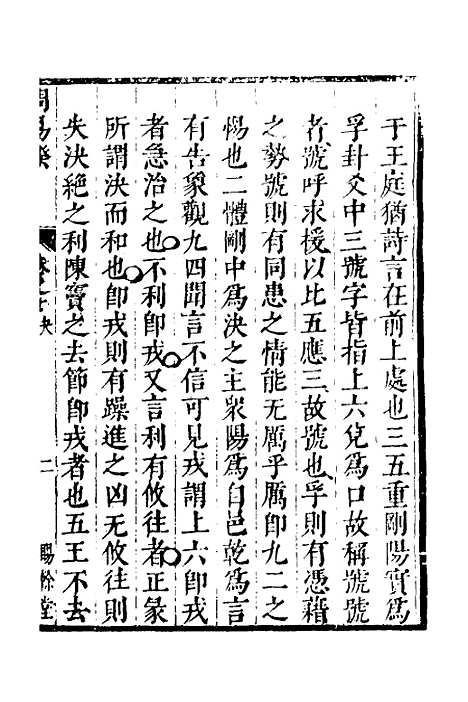 于王庭猶詩言在前上處也三五重剛陽實爲
孚卦爻中三號字皆指上六兌爲口故稱號號
者號呼求援以比五應三故號也孚則有憑藉
之勢號則有同患之情能无厲乎厲卽九二之
惕也二體剛中爲決之主衆陽爲自邑乾爲言
有告象觀九四聞言不信可見戎謂上六卽戎
者急治之也不利卽戎又言利有攸往者正彖
所謂決而和也卽戎則有躁進之凶无攸往則
失決絕之利陳寶之去節卽戎者也五王不去
周易
夬 二 賜餘堂